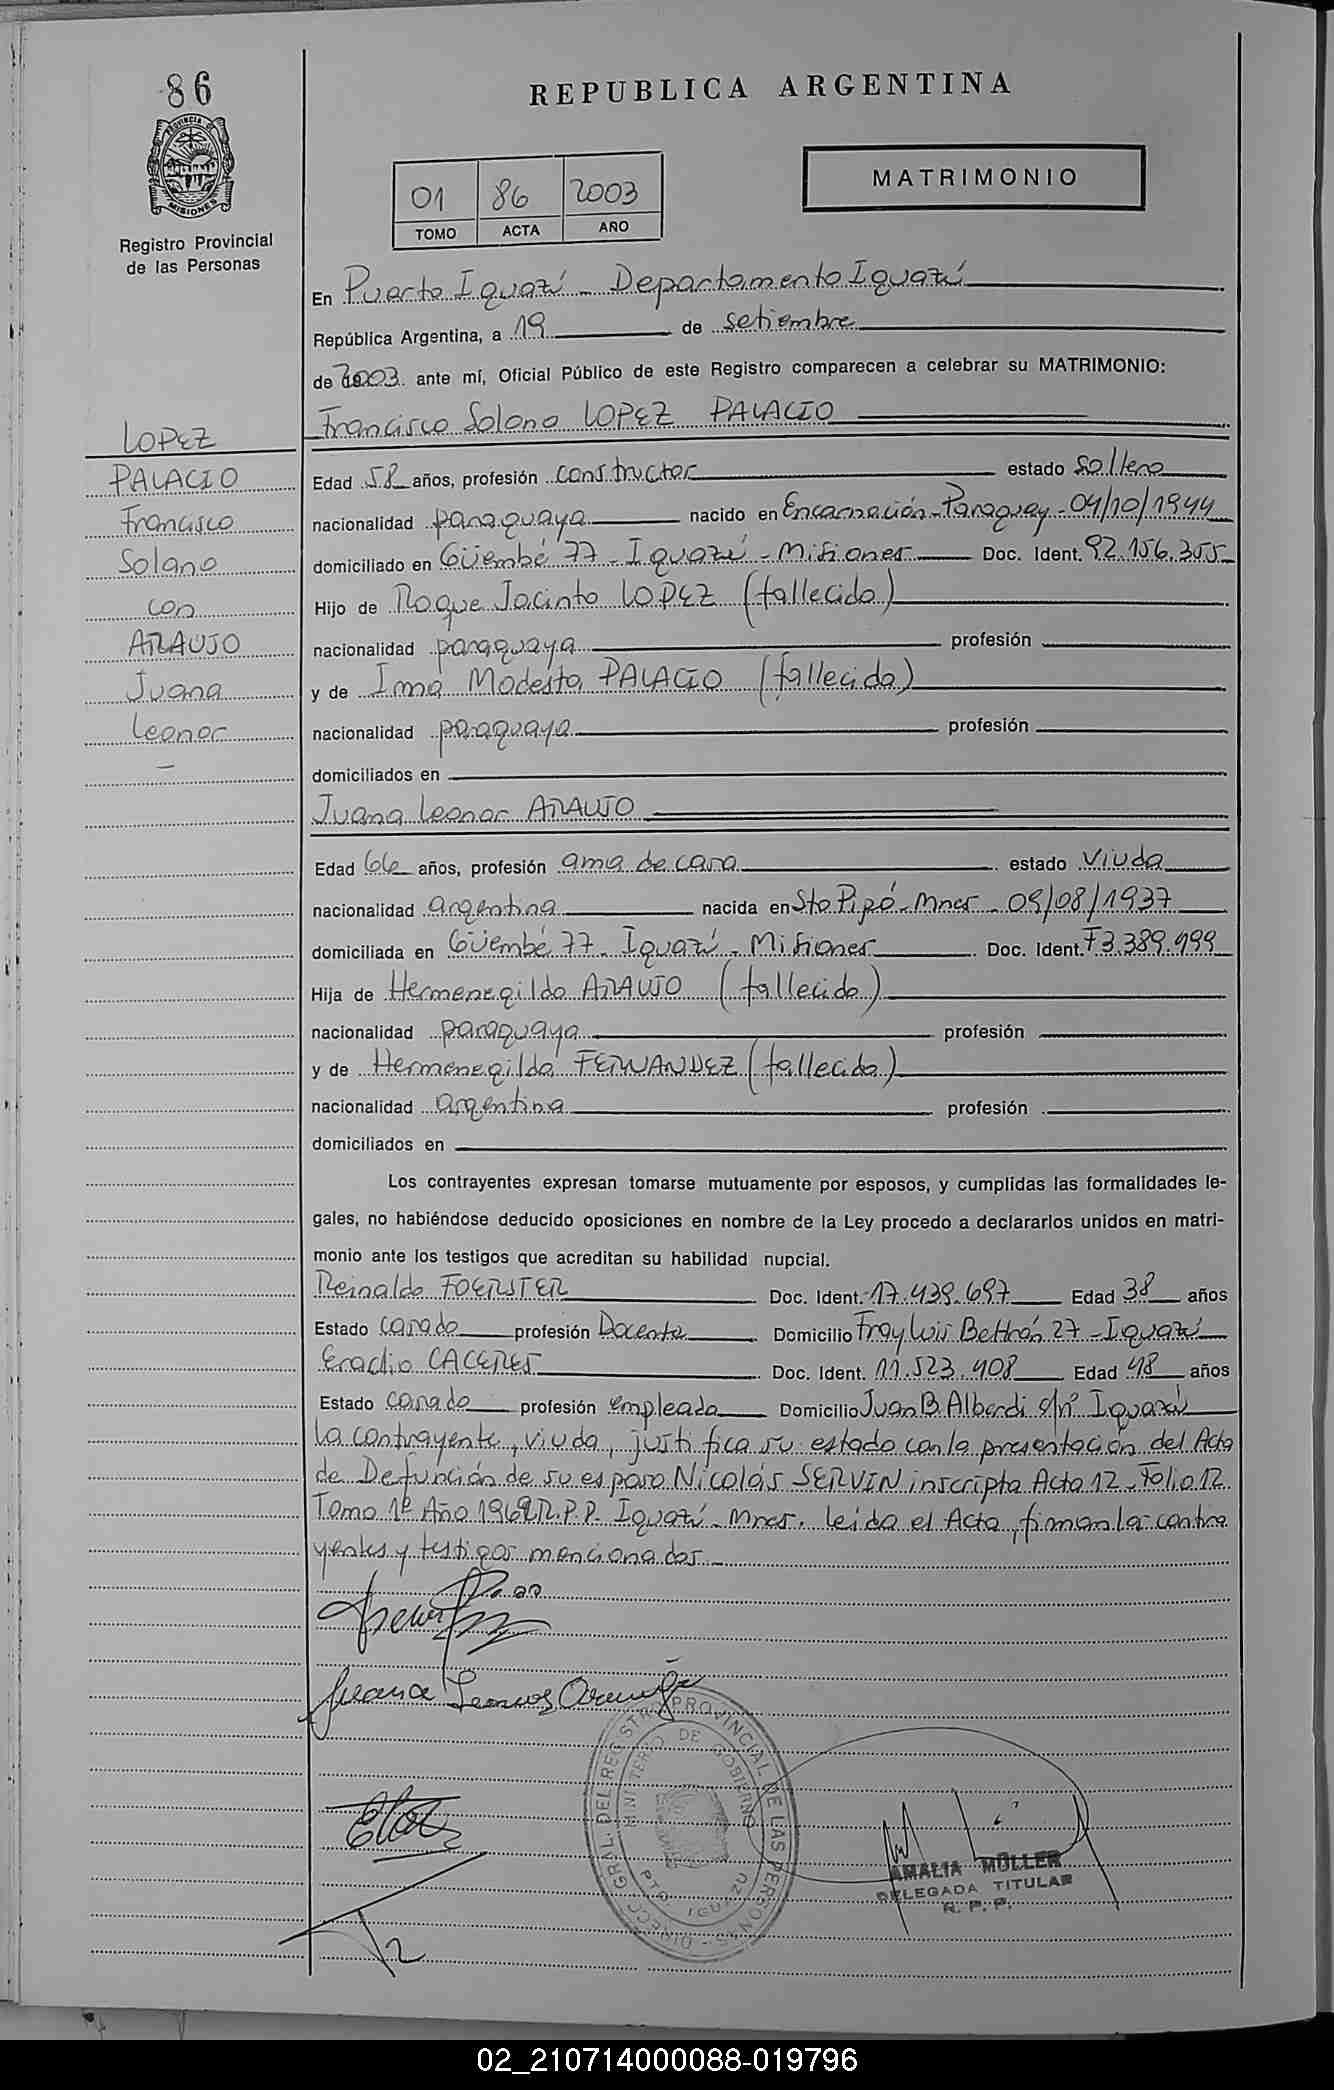 86
REPUBLICA ARGENTINA
PROVINCIA DE
MISIONES
Registro Provincial
de las Personas
01 86 2003
TOMO ACTA AÑO
MATRIMONIO
En Puerto Iguazú - Departamento Iguazú
República Argentina, a 19 de setiembre
de 2003 ante mí, Oficial Público de este Registro comparecen a celebrar su MATRIMONIO:
Francisco Solano LOPEZ PALACIO
LOPEZ
PALACIO
Francisco
Solano
con
ARAUJO
Juana
Leonor
-
Edad 58 años, profesión constructor estado soltero
nacionalidad paraguaya nacido en Encarnación-Paraguay-04/10/1944
domiciliado en Güembé 77-Iguazú-Misiones Doc. Ident. 92.156.355
Hijo de Roque Jacinto LOPEZ (fallecido)
nacionalidad paraguaya profesión
y de Irma Modesta PALACIO (fallecida)
nacionalidad paraguaya profesión
domiciliados en
Juana Leonor ARAUJO
Edad 66 años, profesión ama de casa estado viuda
nacionalidad argentina nacida en Sto Pipó-Mnes-09/08/1937
domiciliada en Güembé 77-Iguazú-Misiones Doc. Ident. F3.389.999
Hija de Hermenegildo ARAUJO (fallecido)
nacionalidad paraguaya profesión
y de Hermenegilda FERNANDEZ (fallecida)
nacionalidad argentina profesión
domiciliados en
Los contrayentes expresan tomarse mutuamente por esposos, y cumplidas las formalidades le-
gales, no habiéndose deducido oposiciones en nombre de la Ley procedo a declararlos unidos en matri-
monio ante los testigos que acreditan su habilidad nupcial.
Reinaldo FOERSTER Doc. Ident. 17.439.697 Edad 38 años
Estado casado profesión Docente Domicilio Fray Luis Beltrán 27-Iguazú
Eradio CACERES Doc. Ident. 11.523.408 Edad 48 años
Estado casado profesión empleado Domicilio Juan B. Alberdi s/nº Iguazú
La contrayente, viuda, justifica su estado con la presentación del Acta
de Defunción de su esposo Nicolás SERVIN inscripta Acta 12-Folio 12
Tomo 1º Año 1969 R.P.P. Iguazú-Mnes. Leída el Acta, firman los contra
yentes y testigos mencionados-
Juana Leonor Araujo
DIRECC. GRAL. DEL REGISTRO PROVINCIAL DE LAS PERSONAS
MINISTERIO DE GOBIERNO
PTO IGUAZU
AMALIA MÜLLER
DELEGADA TITULAR
R. P. P.
02_210714000088-019796